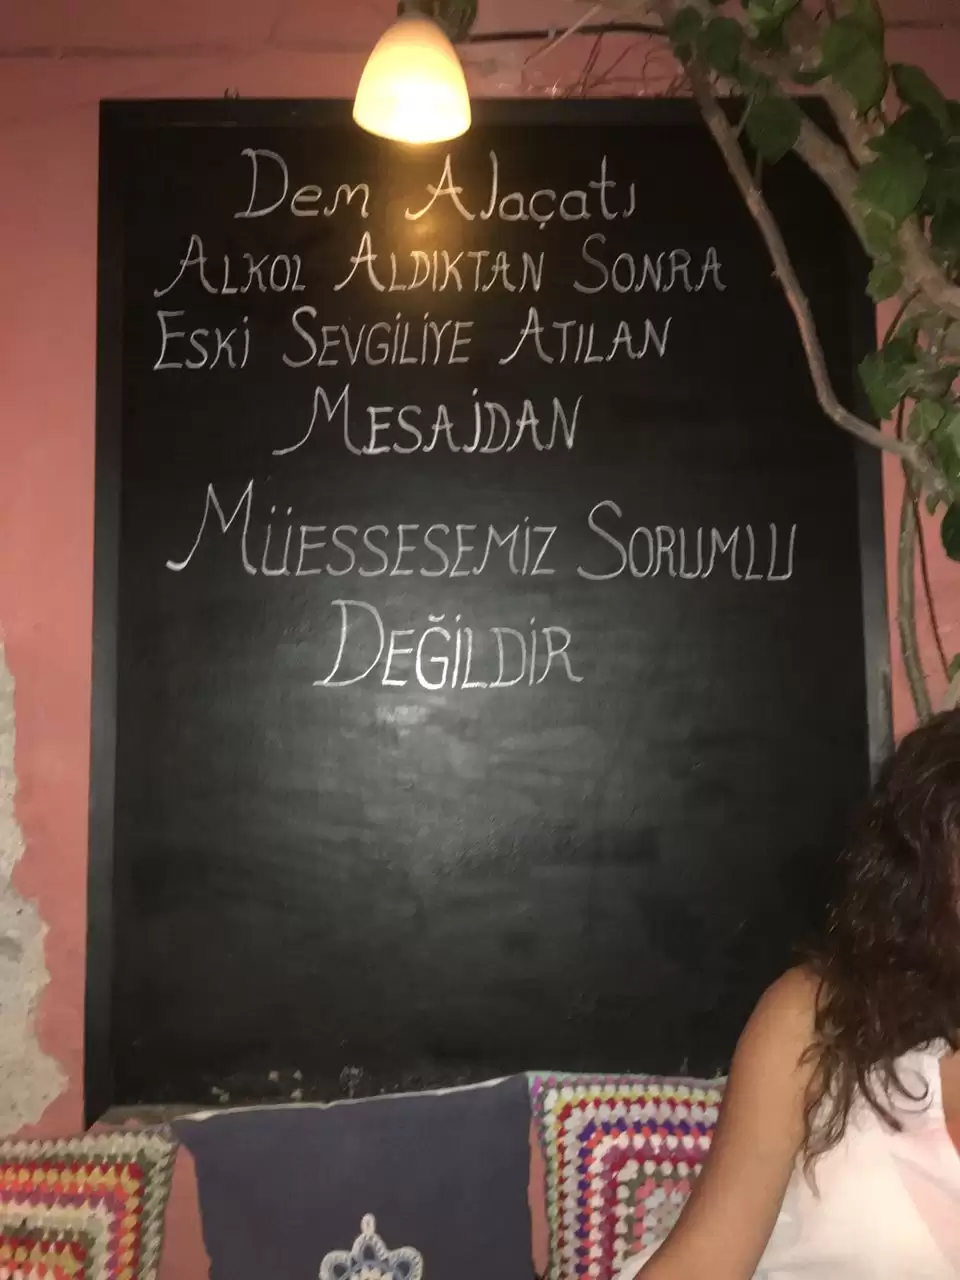 Dem Alaçatı
ALKOL ALDIKTAN SONRA
ESKİ SEVGİLİYE ATILAN
MESAJDAN
MÜESSESEMİZ SORUMLU
DEĞİLDİR